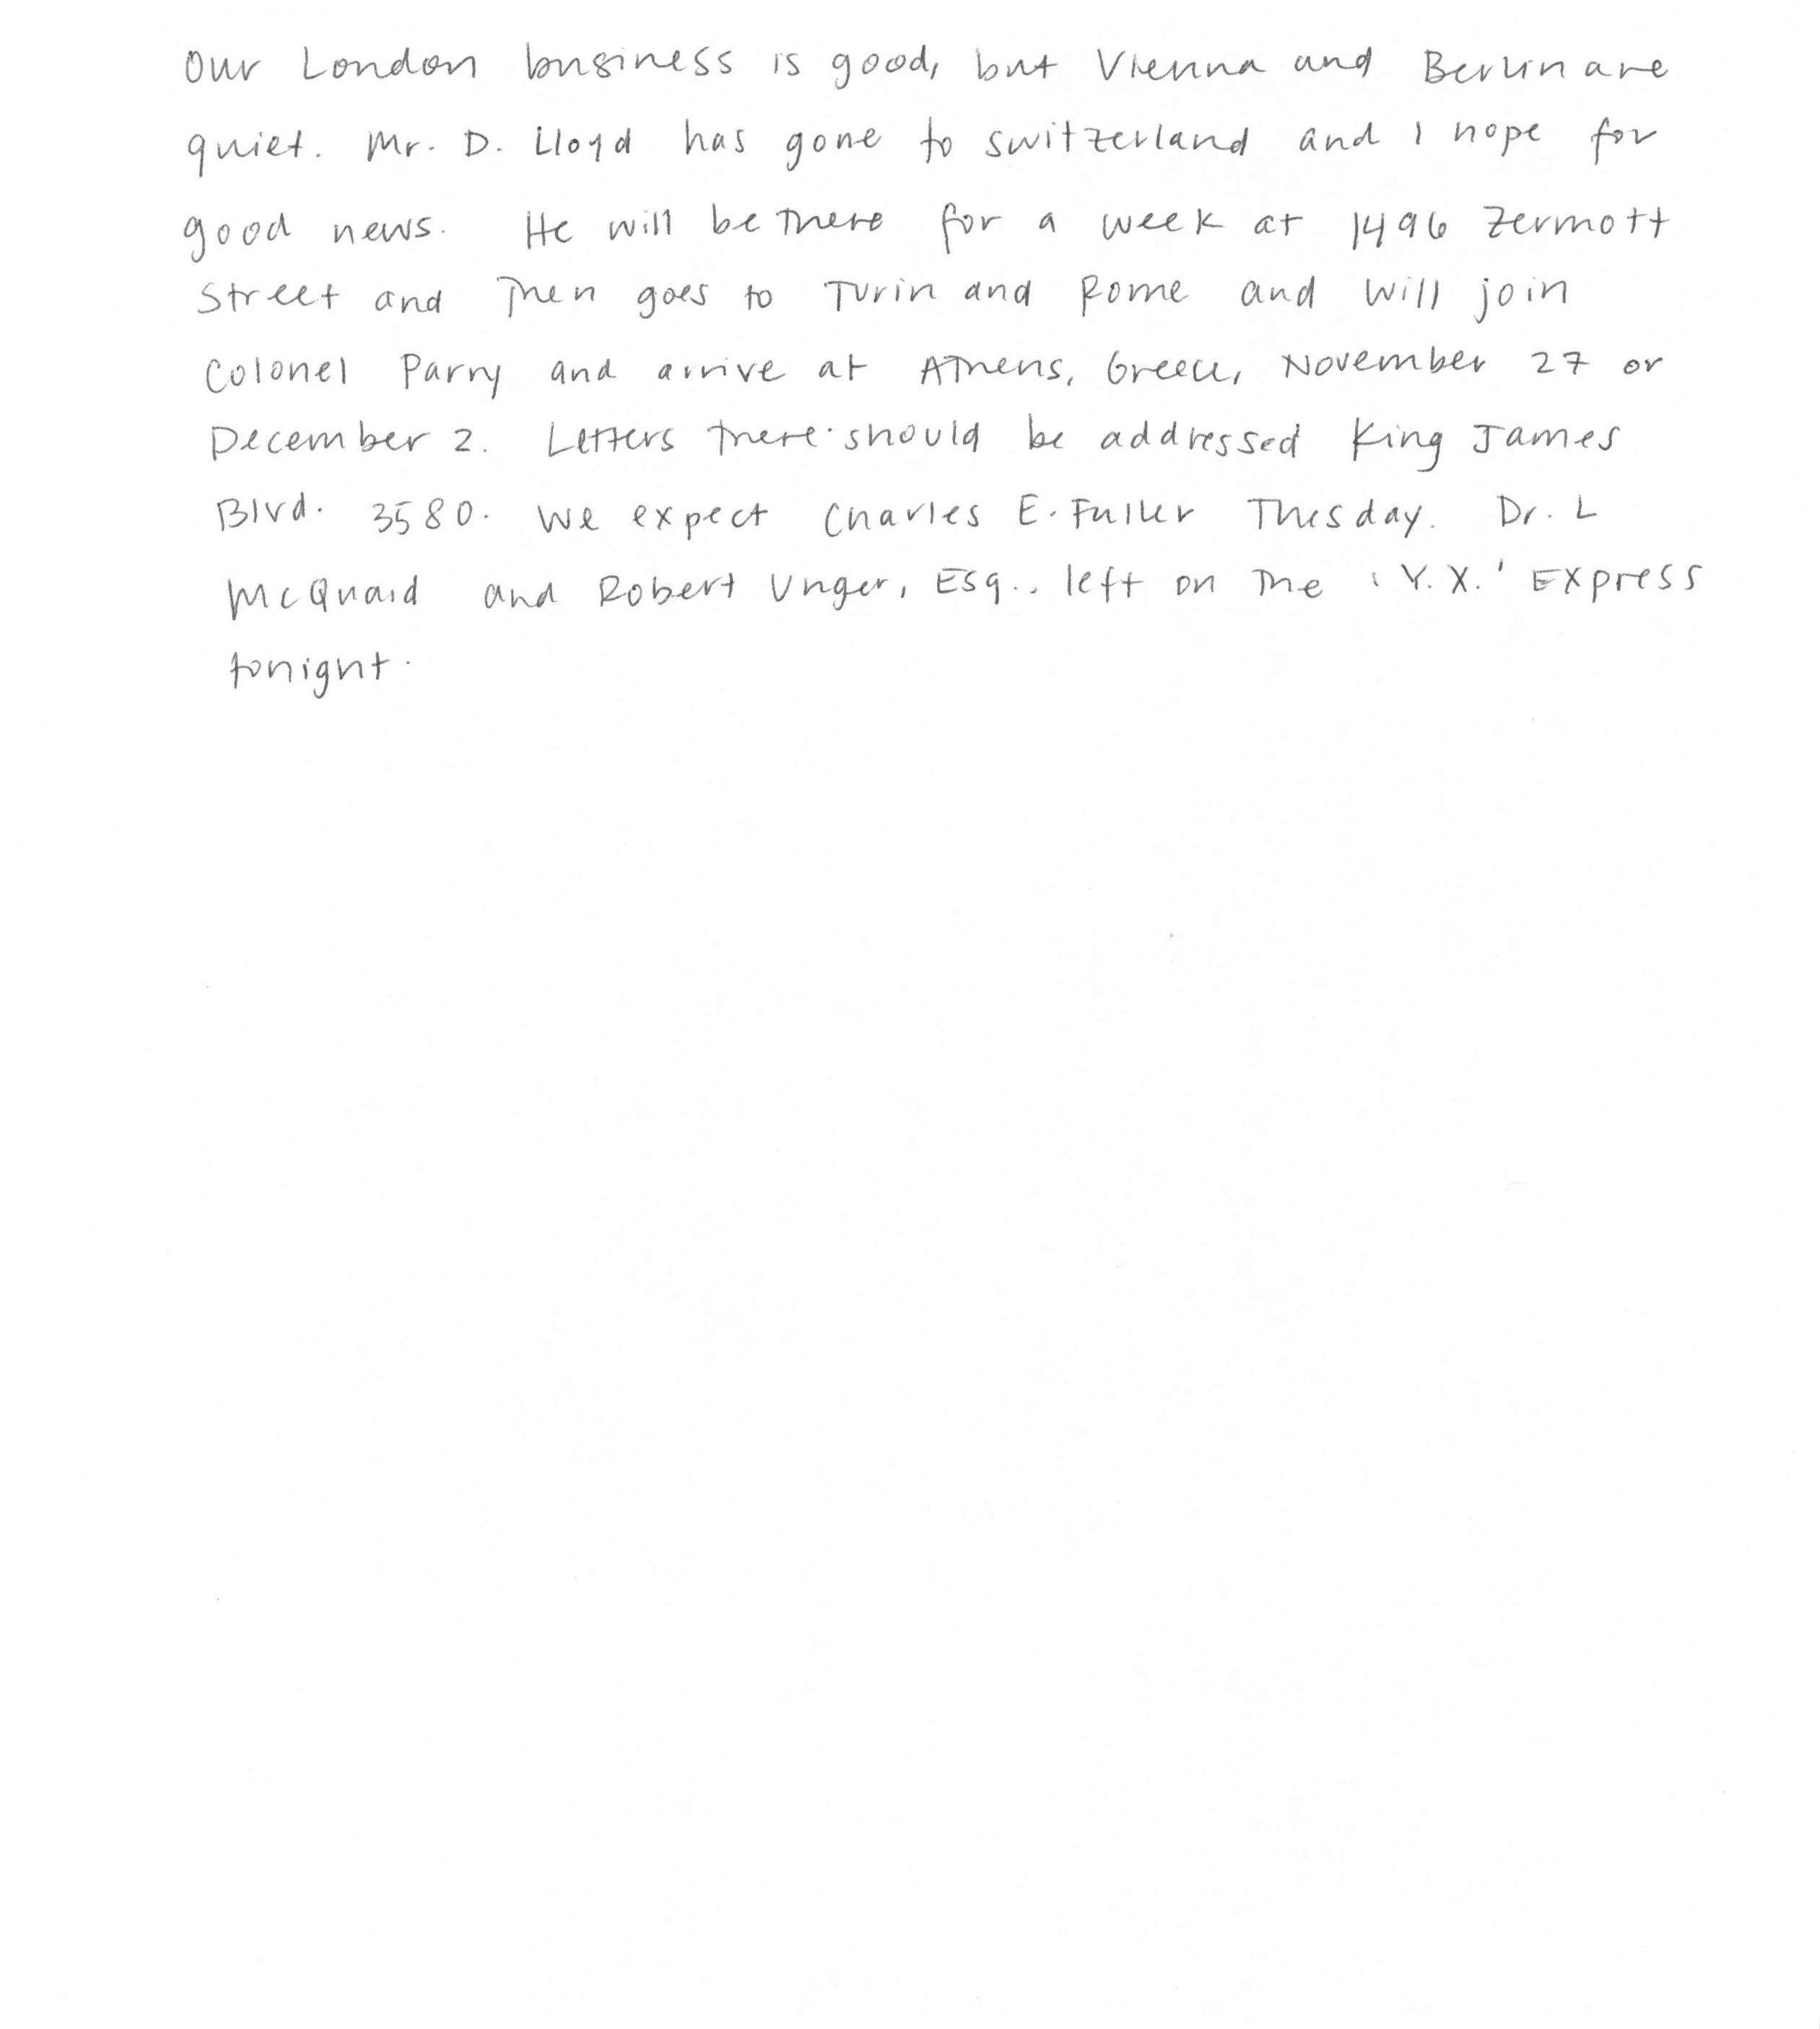 Our London business is good, but Vienna and Berlin are
quiet. Mr. D. Lloyd has gone to Switzerland and I hope for
good news. He will be there for a week at 1496 Zermott
Street and then goes to Turin and Rome and will join
Colonel Parry and arrive at Athens, Greece, November 27 or
December 2. Letters there should be addressed King James
Blvd. 3580. We expect Charles E. Fuller Tuesday. Dr. L
McQuaid and Robert Unger, Esq., left on the 'Y.X.' Express
tonight.